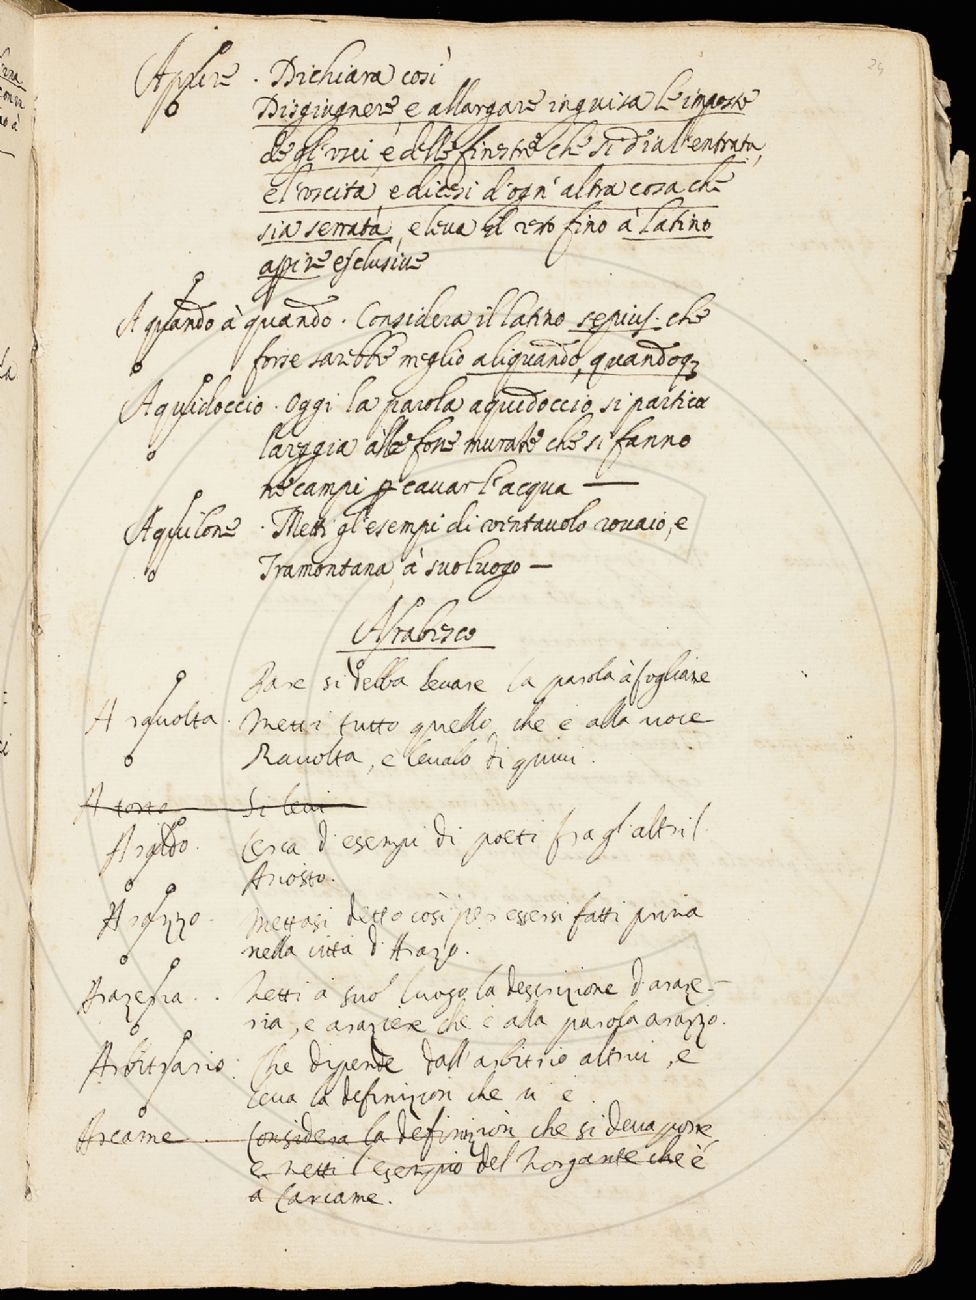 24
Aprire . Dichiara così
Disgiugnere, e allargare in guisa le imposte
de gl'usci, e delle finestre che si dia l'entrata,
e l'uscita, e dicesi d'ogn'altra cosa che
sia serrata, e leva il resto fino à latino
aprire esclusive
A quando à quando . Considera il latino sepius. che
forse sarebbe meglio aliquando, quandoq3
Aquidoccio . Oggi la parola aquidoccio si particu
lareggia alle fosse murate che si fanno
ne campi ꝑ cavar l'acqua —
Aquilone . Metti gl'esempi di ventavolo rovaio, e
Tramontana, à suo luogo —
Arabesco
Pare si debba levare la parola à fogliame
Aravolta . Metti tutto quello, che è alla voce
Ravolta, e levalo di quivi .
A torto Si levi
Araldo . Cerca d'esempi di poeti fra gl'altri l'
Ariosto .
Arazzo . Mettasi detto così per essersi fatti prima
nella città d'Arazo .
Arazeria . . Metti à suo luogo la descrizione d'araze-
ria, e araziere che è alla parola arazzo .
Arbitrario . Che dipende dall'arbitrio altrui, e
leva la definizion che vi è .
Arcame . Considera la definizion che si deva porre
e metti l'esempio del Morgante che è
a Carcame .